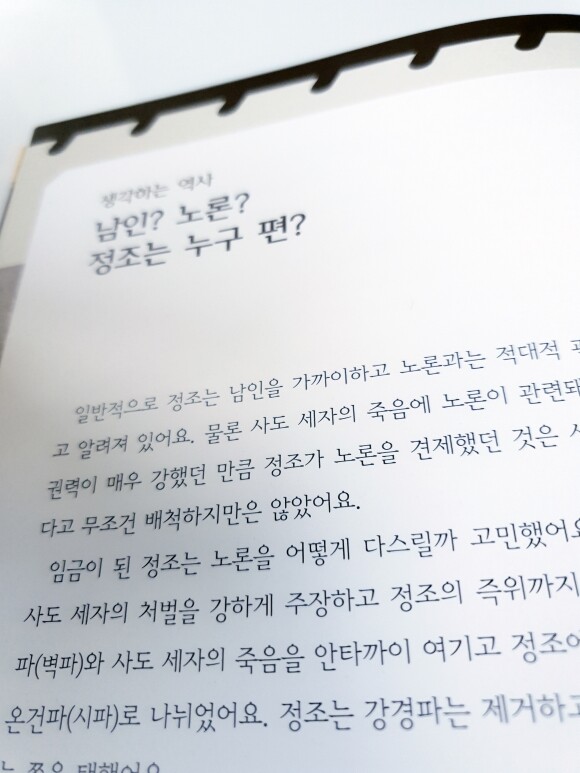 생각하는 역사
남인? 노론?
정조는 누구 편?
일반적으로 정조는 남인을 가까이하고 노론과는 적대적
고 알려져 있어요. 물론 사도 세자의 죽음에 노론이 관련돼
권력이 매우 강했던 만큼 정조가 노론을 견제했던 것은
다고 무조건 배척하지만은 않았어요.
임금이 된 정조는 노론을 어떻게 다스릴까 고민했어요
사도 세자의 처벌을 강하게 주장하고 정조의 즉위까지
파(벽파)와 사도 세자의 죽음을 안타까이 여기고 정조에
온건파(시파)로 나뉘었어요. 정조는 강경파는 제거하고
는 쪽을 택했어요